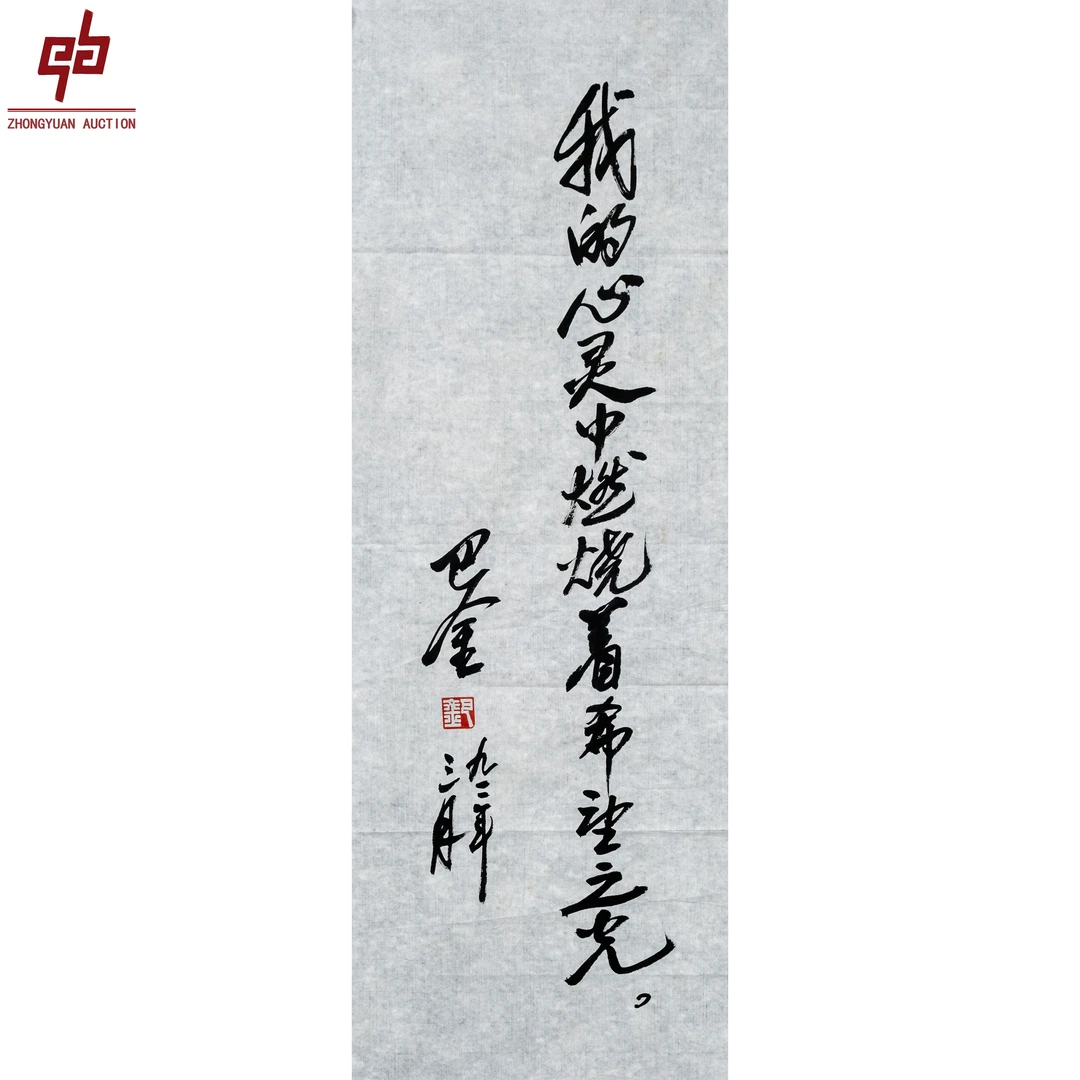 ZHONGYUAN AUCTION
我的心灵中燃烧着希望之光。
巴金
九二年
三月